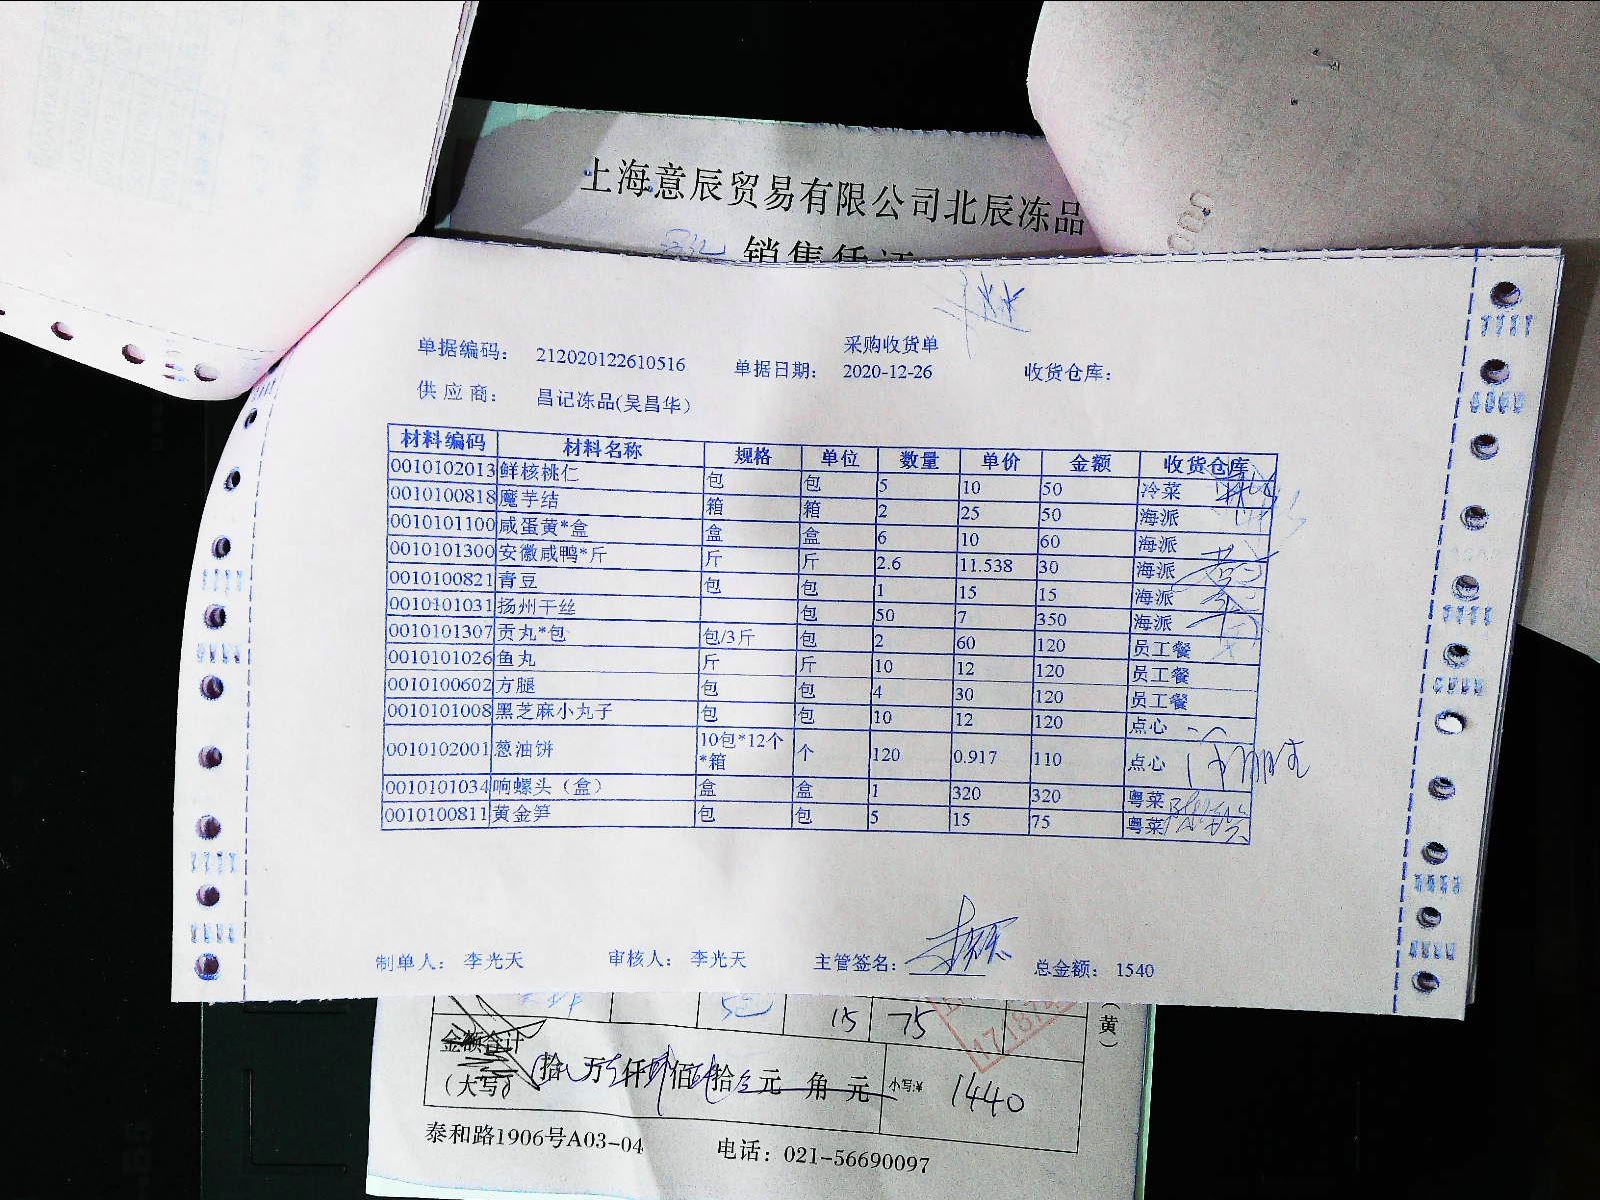 上海意辰贸易有限公司北辰冻品
销售凭证
采购收货单
单据编码： 212020122610516 单据日期： 2020-12-26 收货仓库：
供应商： 昌记冻品(吴昌华)
材料编码 材料名称 规格 单位 数量 单价 金额 收货仓库
0010102013 鲜核桃仁 包 包 5 10 50 冷菜
0010100818 魔芋结 箱 箱 2 25 50 海派
0010101100 咸蛋黄*盒 盒 盒 6 10 60 海派
0010101300 安徽咸鸭*斤 斤 斤 2.6 11.538 30 海派
0010100821 青豆 包 包 1 15 15 海派
0010101031 扬州干丝 包 50 7 350 海派
0010101307 贡丸*包 包/3斤 包 2 60 120 员工餐
0010101026 鱼丸 斤 斤 10 12 120 员工餐
0010100602 方腿 包 包 4 30 120 员工餐
0010101008 黑芝麻小丸子 包 包 10 12 120 点心
0010102001 葱油饼 10包*12个*箱 个 120 0.917 110 点心
0010101034 响螺头（盒） 盒 盒 1 320 320 粤菜
0010100811 黄金笋 包 包 5 15 75 粤菜
制单人： 李光天 审核人： 李光天 主管签名： 总金额： 1540
15 75
（黄）
金额合计
（大写） 拾 万 仟 佰 拾 元 角 元 小写:¥ 1440
泰和路1906号A03-04 电话：021-56690097